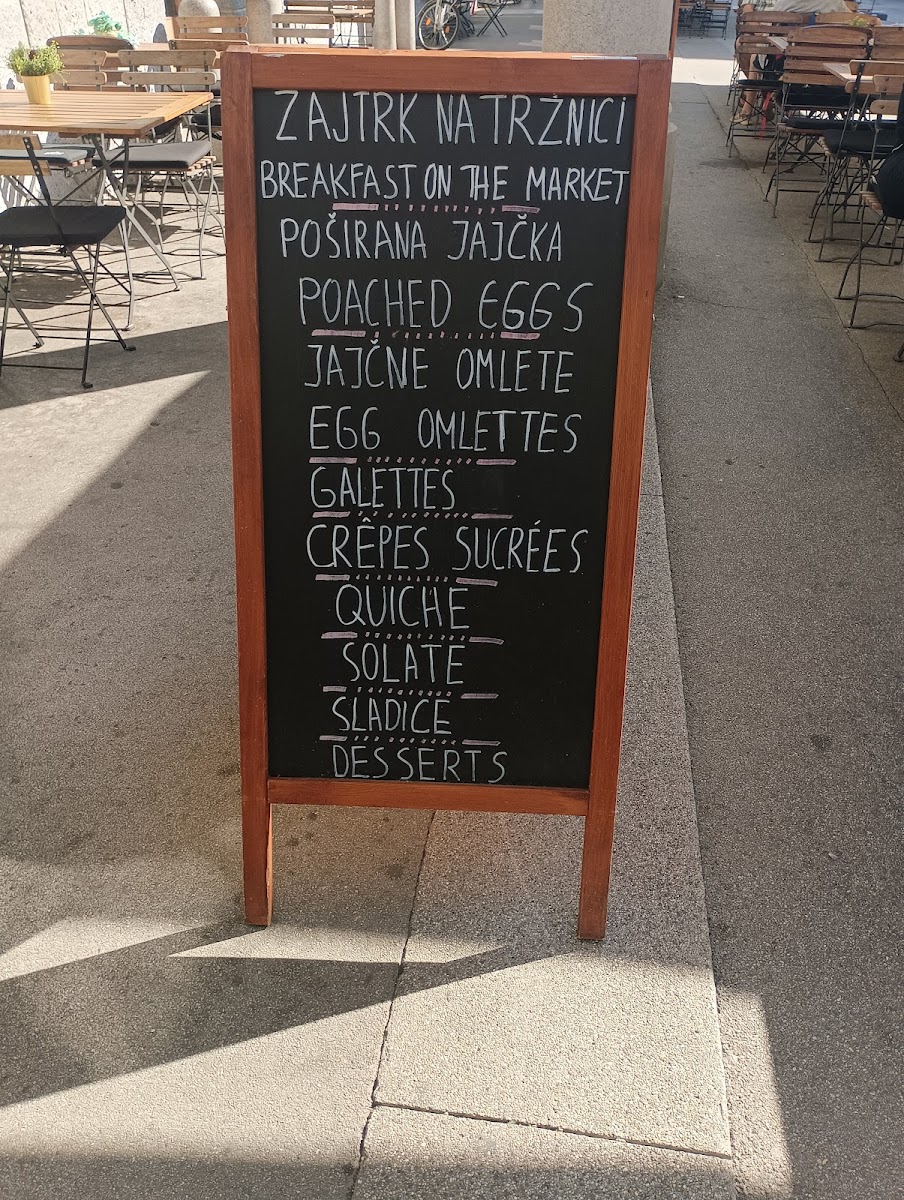 ZAJTRK NA TRŽNICI
BREAKFAST ON THE MARKET
POŠIRANA JAJČKA
POACHED EGGS
JAJČNE OMLETE
EGG OMLETTES
GALETTES
CRÊPES SUCRÉES
QUICHE
SOLATE
SLADICE
DESSERTS